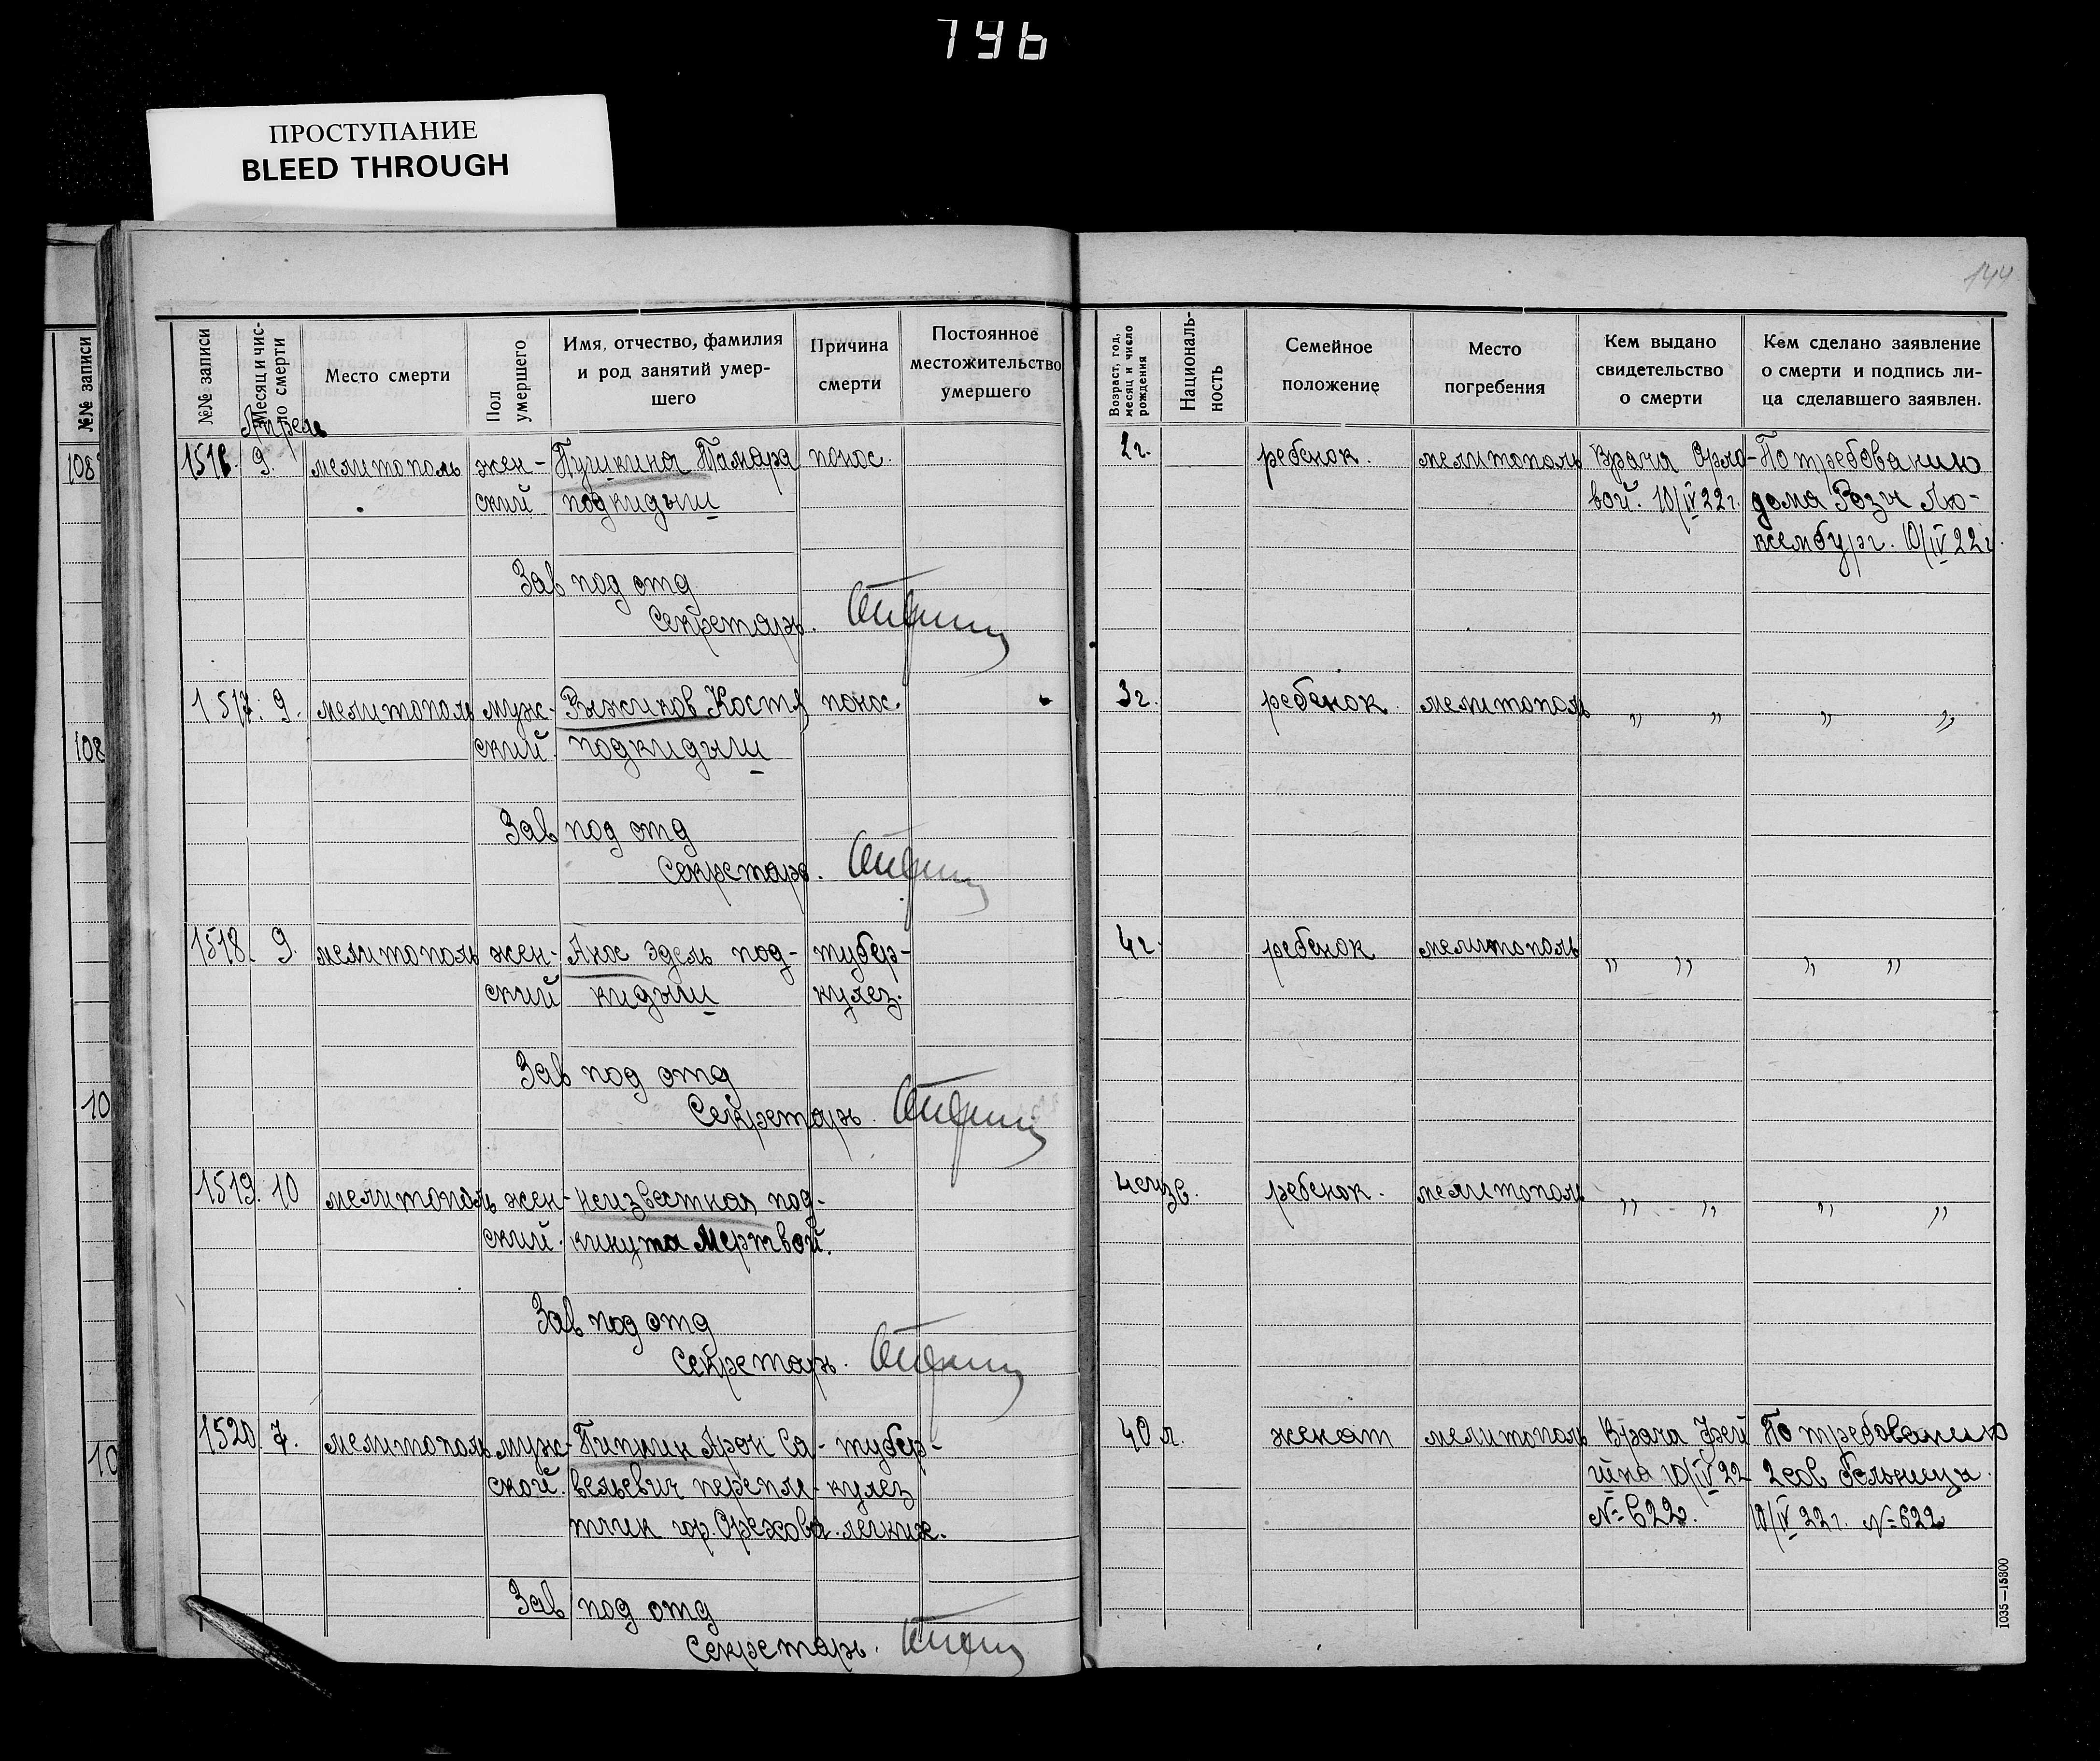 796
ПРОСТУПАНИЕ
BLEED THROUGH
144
№№ записи
№№ записи
Месяц и чис-
ло смерти
Место смерти
Пол
умершего
Имя, отчество, фамилия
и род занятий умер-
шего
Причина
смерти
Постоянное
местожительство
умершего
Возраст, год,
месяц и число
рождения
Националь-
ность
Семейное
положение
Место
погребения
Кем выдано
свидетельство
о смерти
Кем сделано заявление
о смерти и подпись ли-
ца сделавшего заявлен.
Апрель
1516. 9. мелитополь жен- Пушкина Тамара понос. 2г. ребенок. мелитополь Врача Орло- По требованию
ский подкидыш вой. 10/IV 22г. дома Розы Лю-
ксембург. 10/IV 22г.
Зав под отд
Секретарь.
1517. 9. мелитополь муж- Костя понос. 3г. ребенок. мелитополь „ „ „ „
ский подкидыш
Зав под отд
Секретарь.
1518. 9. мелитополь жен- Эдель под- тубер- 4г. ребенок мелитополь „ „ „ „
ский кидыш кулез.
Зав под отд
Секретарь.
1519. 10 мелитополь жен- неизвестная под- неизв. ребенок. мелитополь „ „ „ „
ский. кинута мертвой.
Зав под отд
Секретарь.
1520. 7. мелитополь муж- Пипкин Арон Са- тубер- 40 л. женат мелитополь Врача Фей По требованию
ской. вельевич перепле- кулез 10/IV 22 2 сов больницы.
тчик гор. Орехова. легких. № 622. 10/IV 22г. № 622
Зав под отд
Секретарь.
108
108
10
10
1035—15800